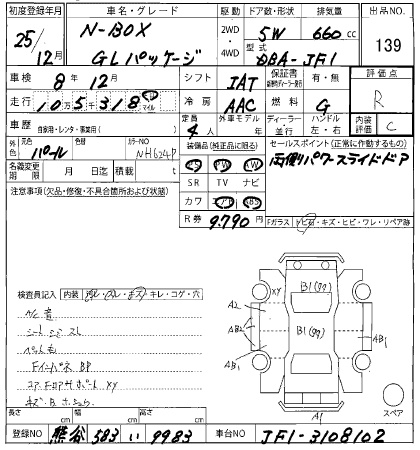 初度登録年月 車名・グレード 駆動 ドア数・形状 排気量 出品NO
25/12月 N-BOX GLパッケージ 2WD・4WD 5W 660cc 139
型式 DBA-JF1
車検 8年12月 シフト IAT 保証書 有・無 評価点 R
走行 10万5千318 マイル 冷房 AAC 燃料 G
車歴 自家用・レンタ・事業用( ) 定員 4人 外車モデル 年 ディーラー・並行 ハンドル 左・右 内装評価 C
外色 元色 パール 色替 カラーNO NH624P 装備品(純正品に限る) セールスポイント(正常に作動するもの)
名義変更期限 月 日迄 積載 t PS PW 両側パワースライドドア
SR TV ナビ
注意事項(欠品・修復・不具合箇所および状態) カワ エアB ABS
R券 9790 円 Fガラス トビ石・キズ・ヒビ・ワレ・リペア跡
検査員記入 内装 汚レ・スレ・キズ・キレ・コゲ・穴
A/C 音
シートシミ スレ
ペット毛
Fインパネ BP
コアサポート XY
XY B1(99) A2 AB2 AB1 B1(99) AB1 A1
スペア
長さ cm 幅 cm 高さ cm
登録NO 熊谷 583 い 9983 車台NO JF1-3108102